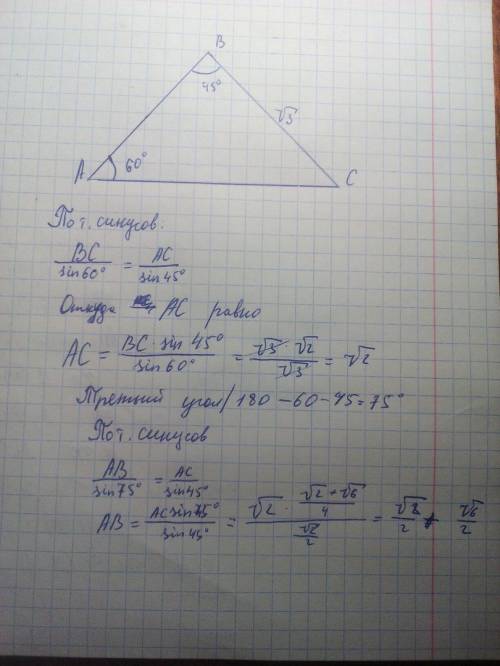 B
45°
√3
A 60°
C
По т. синусов.
BC/sin60° = AC/sin45°
Откуда AC равно
AC = BC · sin 45°/sin60° = √3 · √2/√3 = √2
Третий угол/180 - 60 - 45 = 75°
По т. синусов
AB/sin75° = AC/sin45°
AB = AC sin75°/sin45° = √2 · (√2 + √6)/4/(√2/2) = √2/2 + √6/2